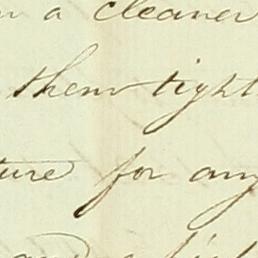 a cleaner
them tight
ture for any
and a